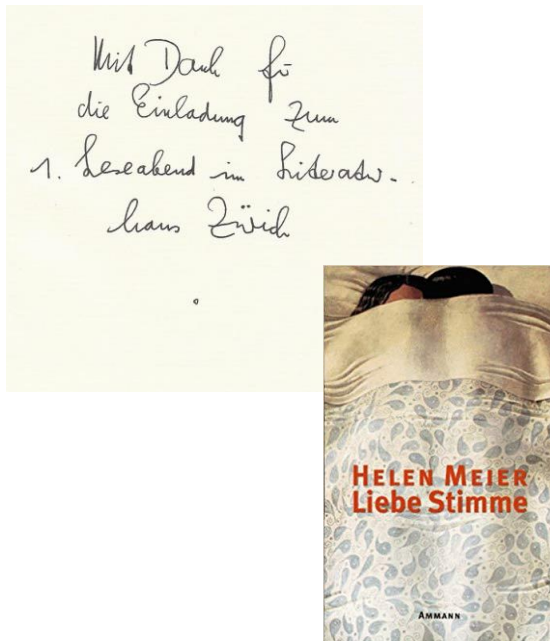 Mit Dank für
die Einladung zum
1. Leseabend im Literatur-
haus Zürich
HELEN MEIER
Liebe Stimme
AMMANN